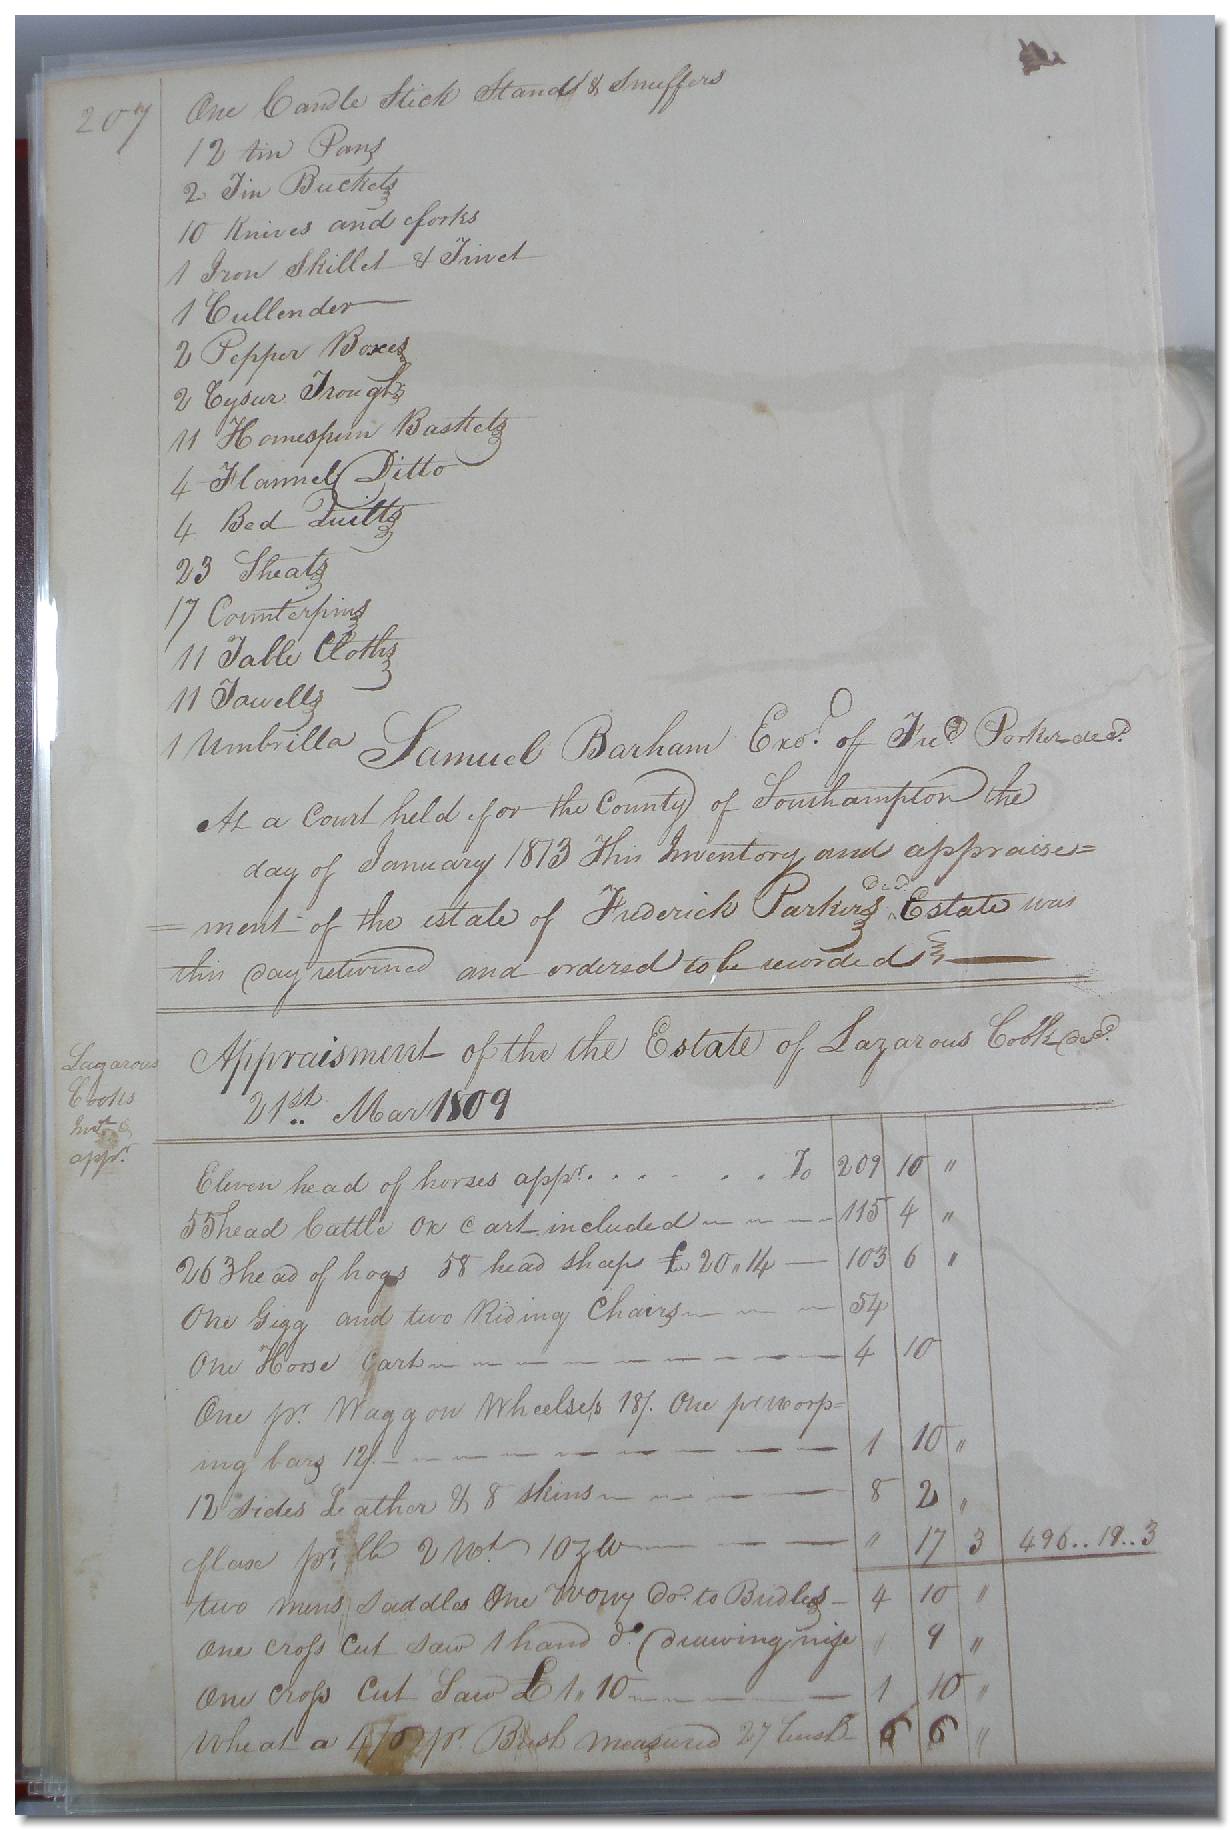 207
One Candle Stick Stand & Snuffers
12 tin Pans
2 Tin Buckets
10 Knives and forks
1 Iron Skillet & Trivet
1 Cullender
2 Pepper Boxes
2 Troughs
11 Homespun Baskets
4 Flannel Ditto
4 Bed Quilts
23 Sheats
17 Counterpins
11 Table Cloths
11 Towells
1 Umbrilla
Samuel Barham Exo.r of Fred Parker decd.
At a Court held for the County of Southampton the
day of January 1813 This Inventory and appraise=
=ment of the estate of Frederick Parkers decd. Estate was
this day returned and ordered to be recorded
Lazarous
Cooks
Invt. &
appr.
Appraisment of the the Estate of Lazarous Cook decd.
21st. Mar 1809
Eleven head of horses appr. . . . . . . To 209 10 "
55 head Cattle ox cart included 115 4 "
263 head of hogs 58 head sheep £20,,14 103 6 "
One Gigg and two Riding Chairs 54
One Horse Cart 4 10
One pr. Waggon Wheels 18/. One pr worp=
ing bars 12/. 1 10 "
12 sides Leather & 8 skins 8 2 "
flax pr. lb 2 " 17 3 496..19..3
two mens Saddles One do. to Bridles 4 10 "
One cross Cut Saw 1 hand do. drawing nife " 9 "
One cross Cut Saw £1,,10 1 10 "
Wheat a pr. Bush measured 27 bush 6 6 "